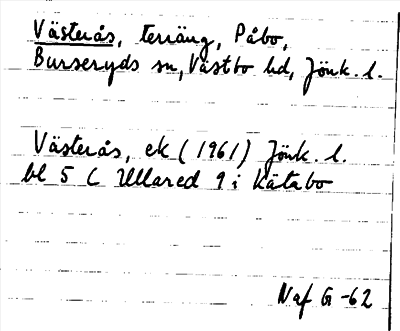 Västerås, terräng, Påbo,
Burseryds sn, Västbo hd, Jönk. l.
Västerås, ek (1961) Jönk. l.
bl 5 C Ullared 9 i Kätabo
Naf G -62